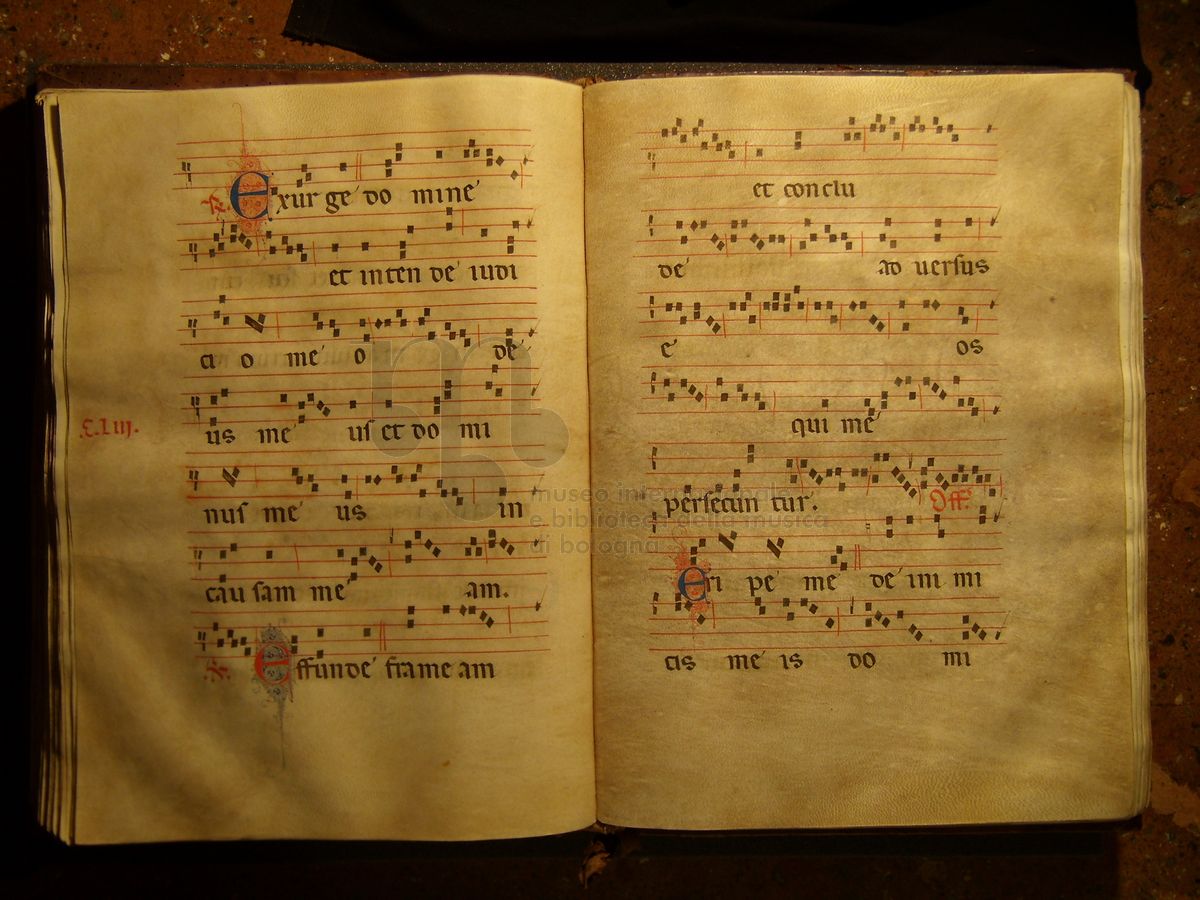 Exur ge do mine
et inten de iudi
ci o me o de
us me us et do mi
nus me us in
C.LIII.
cau sam me am.
Effunde frame am
et conclu
de ad uersus
e os
qui me
persecun tur. Off.
Eri pe me de ini mi
cis me is do mi
museo internazionale
e biblioteca della musica
di bologna